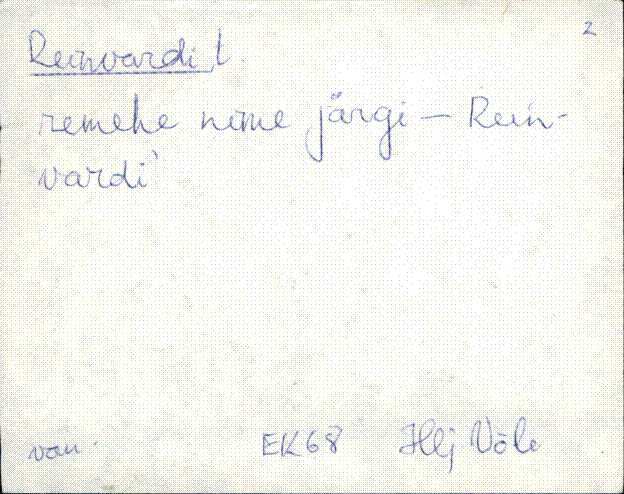 2
Reinvardi t.
remehe nime järgi — Rein-
vardi
van. EK68 Hlj Võle